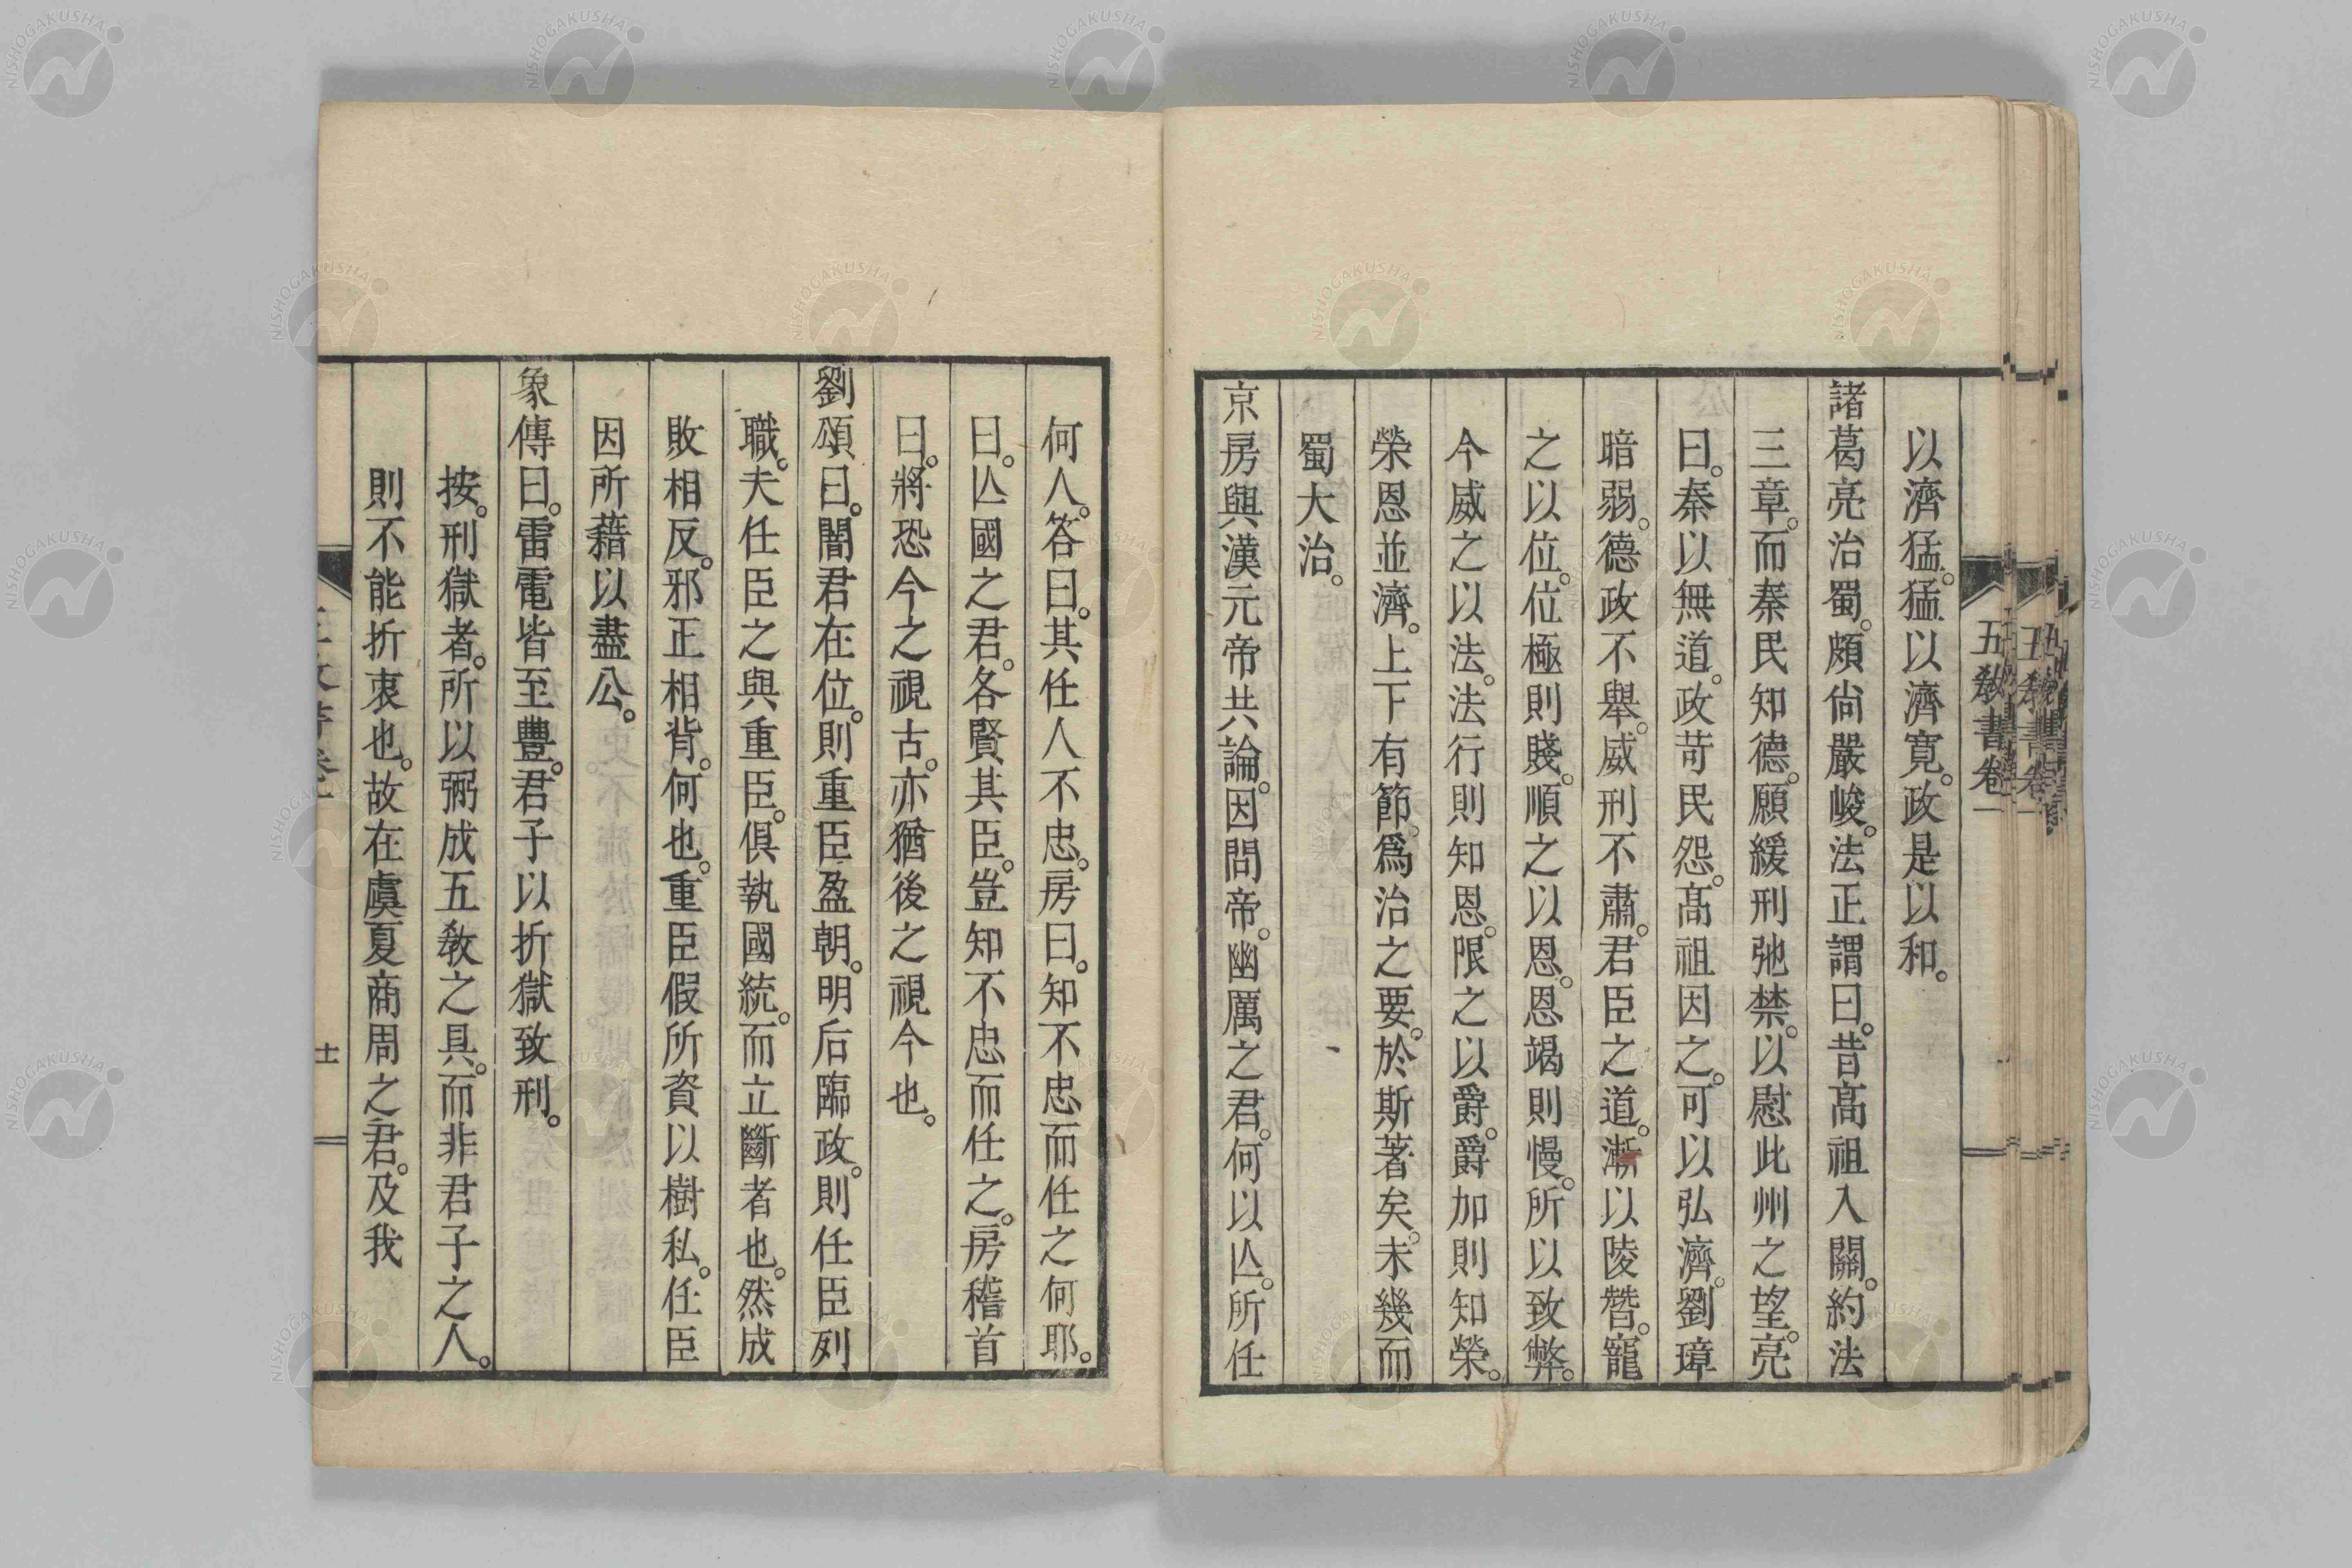 以濟猛。猛以濟寛。政是以和。
諸葛亮治蜀。頗尙嚴峻。法正謂曰。昔髙祖入關。約法
三章。而秦民知德。願緩刑弛禁。以慰此州之望。亮
曰。秦以無道。政苛民怨。髙祖因之。可以弘濟。劉璋
暗弱。德政不舉。威刑不肅。君臣之道。漸以陵替。寵
之以位。位極則賤。順之以恩。恩竭則慢。所以致弊。
今威之以法。法行則知恩。限之以爵。爵加則知榮。
榮恩並濟。上下有節。爲治之要。於斯著矣。未幾而
蜀大治。
京房與漢元帝共論。因問帝。幽厲之君。何以亾。所任
五敎書卷一
何人。答曰。其任人不忠。房曰。知不忠而任之何耶。
曰。亾國之君。各賢其臣。豈知不忠而任之。房稽首
曰。將恐今之視古。亦猶後之視今也。
劉頌曰。闇君在位。則重臣盈朝。明后臨政。則任臣列
職。夫任臣之與重臣。俱執國統。而立斷者也。然成
敗相反。邪正相背。何也。重臣假所資以樹私。任臣
因所藉以盡公。
象傳曰。雷電皆至豐。君子以折獄致刑。
按。刑獄者。所以弼成五敎之具。而非君子之人。
則不能折衷也。故在虞夏商周之君。及我
十一
NISHOGAKUSHA